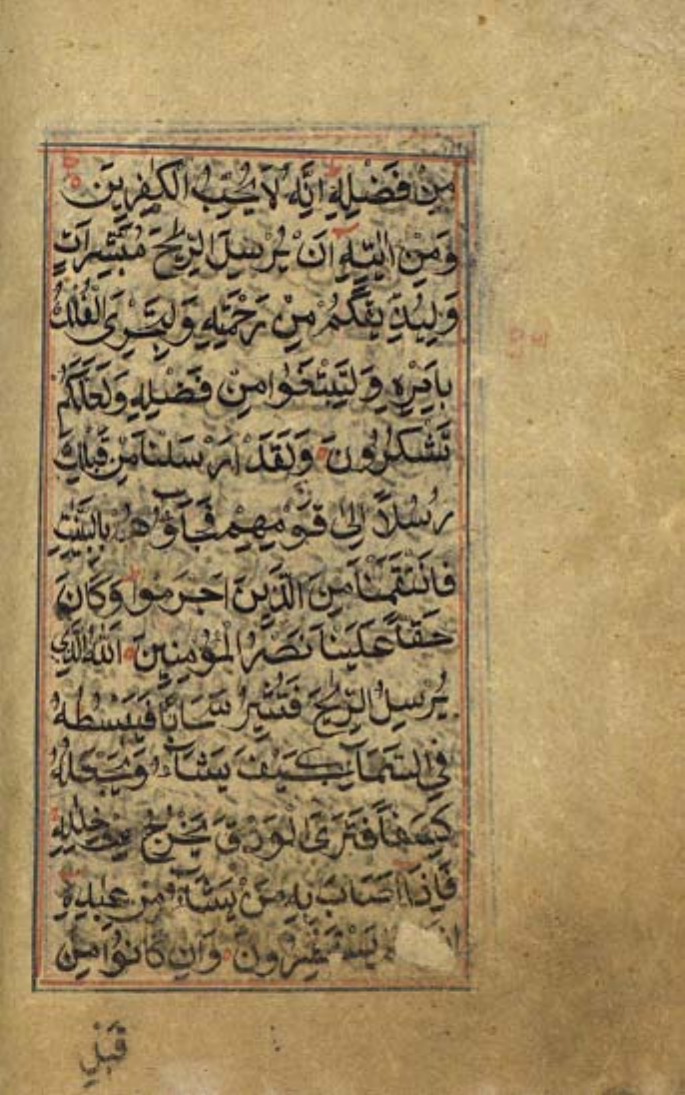 مِنْ فَضْلِهٖ اِنَّهٗ لَا يُحِبُّ الْكٰفِرِيْنَ
وَمِنْ اٰيٰتِهٖ اَنْ يُرْسِلَ الرِّيٰحَ مُبَشِّرَاتٍ
وَلِيُذِيْقَكُمْ مِنْ رَحْمَتِهٖ وَلِتَجْرِىَ الْفُلْكُ
بِاَمْرِهٖ وَلِتَبْتَغُوْا مِنْ فَضْلِهٖ وَلَعَلَّكُمْ
تَشْكُرُوْنَ وَلَقَدْ اَرْسَلْنَا مِنْ قَبْلِكَ
رُسُلًا اِلٰى قَوْمِهِمْ فَجَآؤُهُمْ بِالْبَيِّنٰتِ
فَانْتَقَمْنَا مِنَ الَّذِيْنَ اَجْرَمُوْا وَكَانَ
حَقًّا عَلَيْنَا نَصْرُ الْمُؤْمِنِيْنَ اَللّٰهُ الَّذِىْ
يُرْسِلُ الرِّيٰحَ فَتُثِيْرُ سَحَابًا فَيَبْسُطُهٗ
فِى السَّمَآءِ كَيْفَ يَشَآءُ وَيَجْعَلُهٗ
كِسَفًا فَتَرَى الْوَدْقَ يَخْرُجُ مِنْ خِلٰلِهٖ
فَاِذَا اَصَابَ بِهٖ مَنْ يَشَآءُ مِنْ عِبَادِهٖ
يَسْتَبْشِرُوْنَ وَاِنْ كَانُوْا مِنْ
قَبْلِ